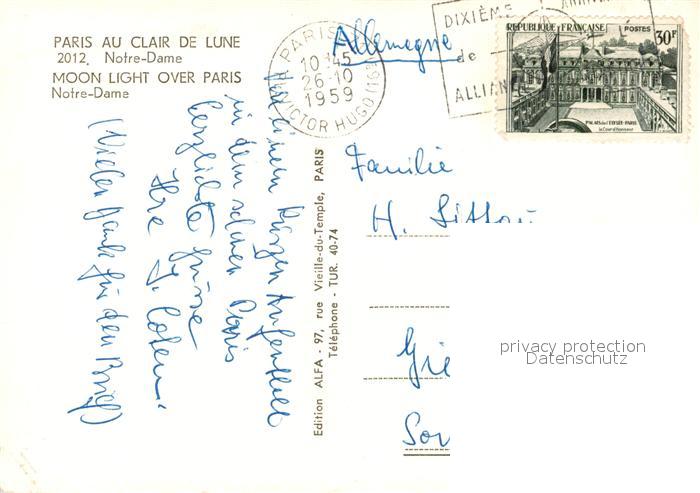 PARIS AU CLAIR DE LUNE
2012, Notre-Dame
MOON LIGHT OVER PARIS
Notre-Dame
PARIS
10H45
26-10
1959
VICTOR HUGO (16E)
DIXIÈME
de
ALLIAN
REPUBLIQUE FRANÇAISE POSTES
30F
PALAIS de l'ELYSÉE-PARIS
la Cour d'honneur
Allemagne
Familie
H.
Gie
Sor
Von einem kurzen Aufenthalt
in dem schönen Paris
herzlichste Grüsse
Ihre
(Vielen Dank für den Brief)
Edition ALFA - 97, rue Vieille-du-Temple, PARIS
Téléphone - TUR. 40-74
privacy protection
Datenschutz